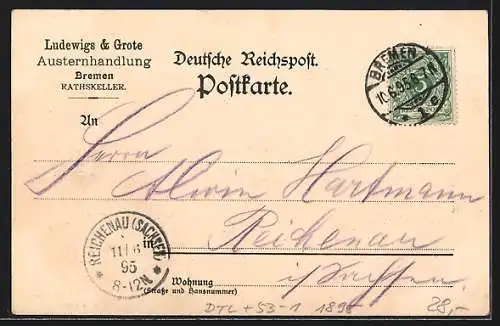 Ludewigs & Grote
Austernhandlung
Bremen
RATHSKELLER.
Deutsche Reichspost.
Postkarte.
BREMEN
10.6.95
1
An
Herrn
Alwin Hartmann
in Reichenau
i/Sachsen
REICHENAU (SACHSEN)
11/6
95
8-12N
Wohnung
(Straße und Hausnummer)
DTL +53-1 1895
28,-